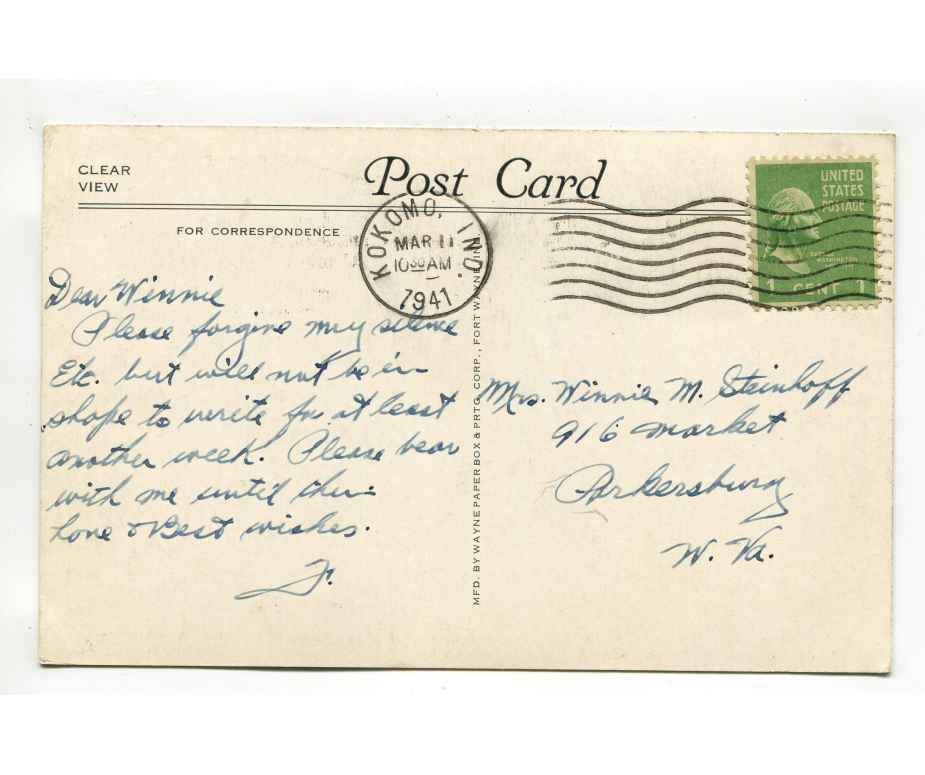 CLEAR
VIEW
Post Card
FOR CORRESPONDENCE
KOKOMO, IND.
MAR 11
10 30 AM
1941
UNITED
STATES
POSTAGE
WASHINGTON
1 CENT 1
Dear Winnie
Please forgive my silence
Etc. but will not be in
shape to write for at least
another week. Please bear
with me until then
Love & Best wishes.
F.
MFD. BY WAYNE PAPER BOX & PRTG. CORP., FORT WAYNE, IND.
Mrs. Winnie M. Steinhoff
916 Market
Parkersburg
W. Va.